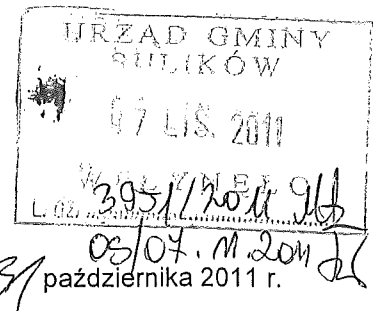 URZĄD GMINY
SULIKÓW
07 LIS. 2011
WPŁYNĘŁO
L. dz. 3951/2011
OS/07.11.2011
31 października 2011 r.